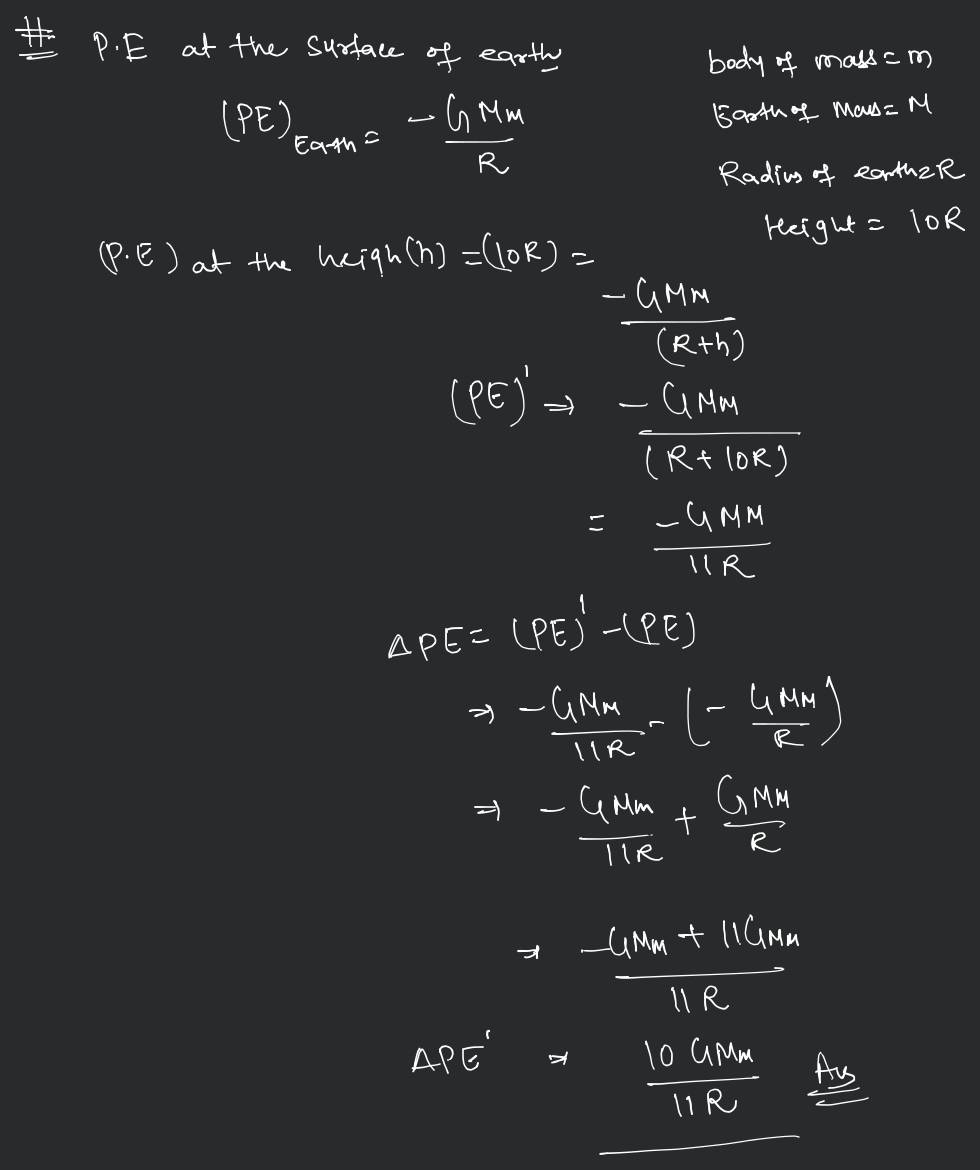 # P.E at the surface of earth
body of mass = m
(PE) Earth = - GMm / R
Earth of Mass = M
Radius of earth = R
Height = 10R
(P.E) at the heigh(h) = (10R) =
- GMm / (R+h)
(PE)' ⇒ - GMm / (R + 10R)
= - GMM / 11R
ΔPE = (PE)' - (PE)
⇒ - GMm / 11R - (- GMM / R)
⇒ - GMm / 11R + GMM / R
⇒ -GMm + 11GMm / 11R
ΔPE' ⇒ 10 GMm / 11R Ans